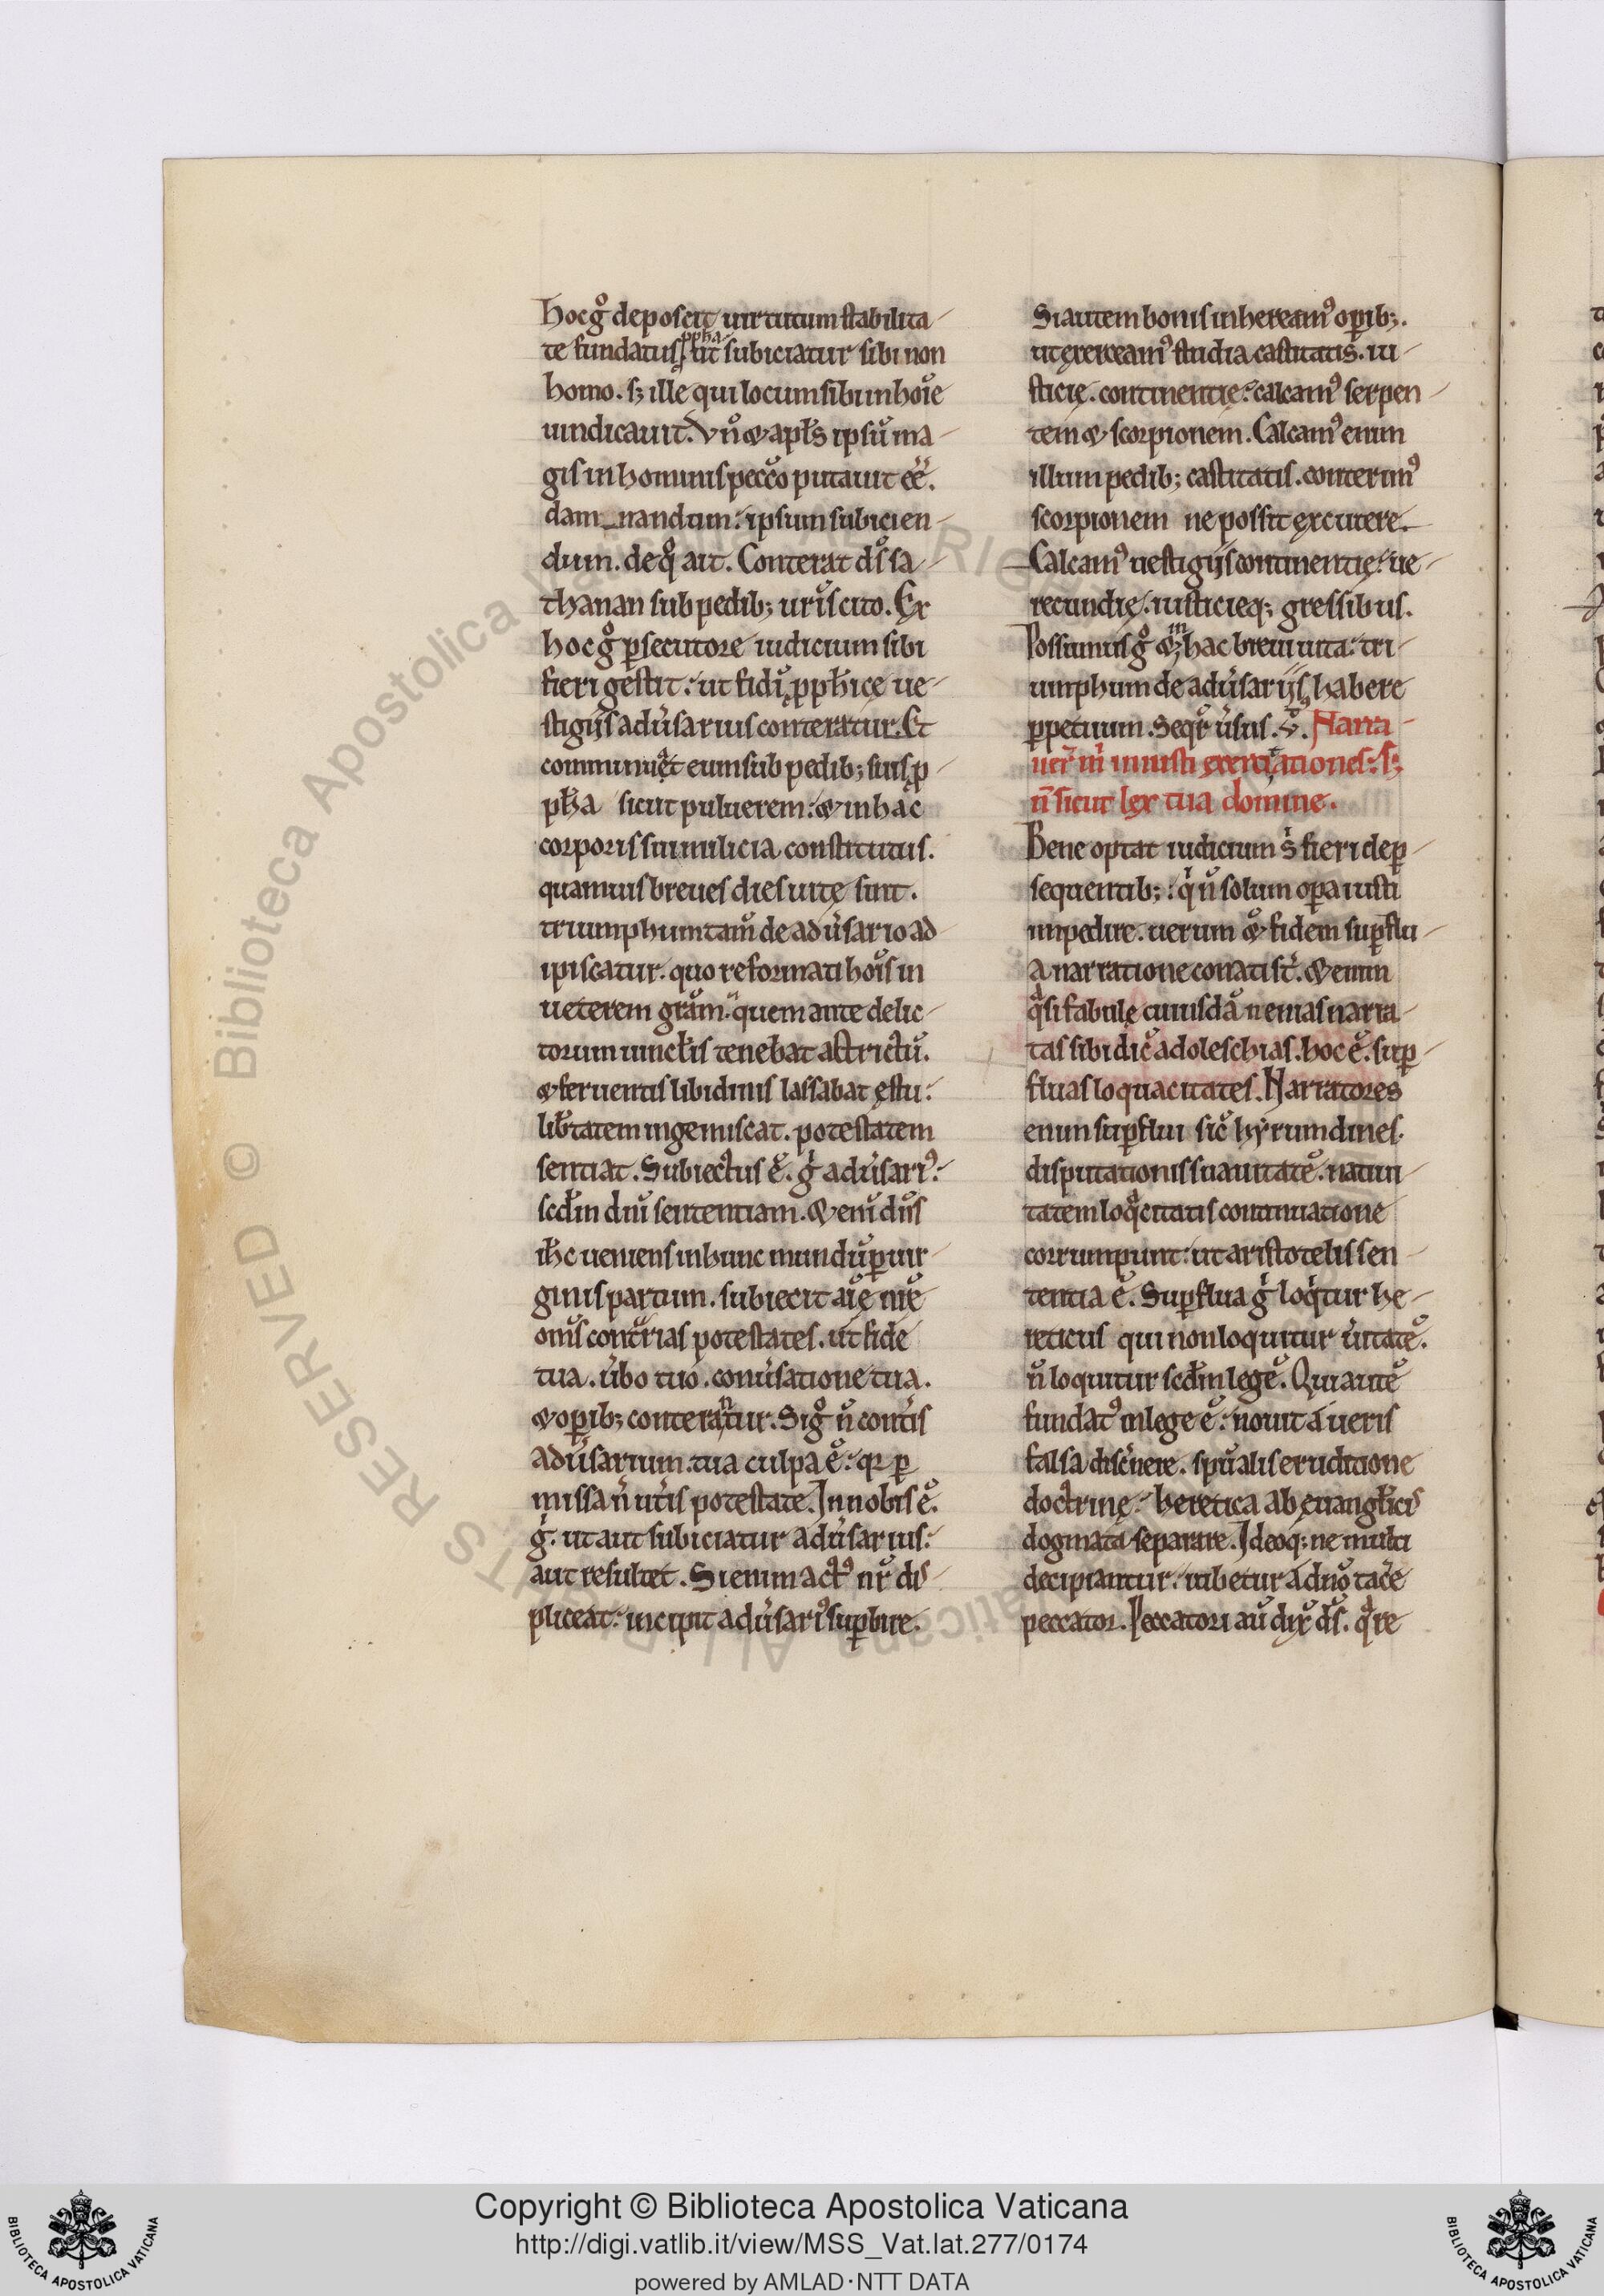 hoc gͦ deposcit uirtutum stabilita-
te fundatus ꝓpha ut subiciatur sibi non
homo. sꝫ ille qui locum sibi in hoı̄e
uindicauit. Vn̄ & apl̄s ipsū ma-
gis in hominis pecc̄o putauit eē.
dam_nandum: ipsum subicien-
dum. de qͦ ait. Conterat ds̄ sa-
thanan sub pedibꝫ ur̄is cito. Ex
hoc gͦ ꝑsecutore iudicium sibi
fieri gestit: ut fidi ꝓph̄ice ue-
stigijs adu̓sarius conteratur. Et
comminuat eum sub pedibꝫ suis ꝓ-
ph̄a sicut puluerem: & in hac
corporis sui milicia constitutus.
quamuis breues dies uitę sint.
triumphum tam̄ de adu̓sario ad
ipiscatur. quo reformati hoīs in
ueterem grām: quem ante delic-
torum uincl̄is teneb̄at astrictū.
& feruentis libidinis lassabat ęstu:
lib̄tatem ingemiscat. potestatem
sentiat. Subiectus ē. gͥ adu̓sariꝰ:
scd̄m diū sententiam. & enī dn̄s
ih̄c ueniens in hunc mundū ꝑ uir-
ginis partum. subiecit aı̄ę nr̄ę
om̄s cont̓rias potestates. ut fide
tua. ūbo tuo. conu̓satione tua.
& oꝑibꝫ conterantur. Si gͦ n̄ cont̓is
adu̓sarium. tua culpa ē: qꝛ ꝑ
missa n̄ ut̓is potestate. In nobis ē.
gͥ. ut aut subiciatur adu̓sarius:
aut resultet. Si enim actꝰ nr̄ dis-
pliceat: incipit adu̓sariꝰ suꝑbire.
Si autem bonis inhereamꝰ oꝑibꝫ.
ut exerceamꝰ studia castitatis. iu-
sticię. continentię: calcamꝰ serpen-
tem & scorpionem. Calcamꝰ enim
illum pedibꝫ castitatis. conterimꝰ
scorpionem ne possit excutere.
Calcamꝰ uestigijs continentię: ue-
recundię. iusticieqꝫ gressibus.
Possumus gͦ & in hac breui uita: tri-
umphum de adu̓sarijs habere
ꝑpetuum. Seqr̄ u̓sus. Narra-
uer̄ m̄ iniusti exercitationes: sꝫ
n̄ sicut lex tua domine.
Bene optat iudicium sͥ fieri de ꝑ-
sequentibꝫ: qͥ n̄ solum oꝑa iusti
impedire. uerum & fidem suꝑflu-
a narratione conati st̄. & enim
qͣsi fabulę cuiusdā nenias narra-
tas sibi dic̄ adoleschias. hoc ē. suꝑ-
fluas loquacitates. Narratores
enim suꝑflui sic̄ hyrundines.
disputationis suauitatē. natiui-
tatem loqͣcitatis continuatione
corrumpunt: ut aristotelis sen-
tentia ē. Suꝑflua gͥ loqͥtur he-
reticus qui non loquitur u̓itatē.
n̄ loquitur scd̄m legē. Qui autē
fundatꝰ in lege ē: nouit a ueris
falsa disc̓nere. spūali seruditione
doctrinę: heretica ab euangl̄icis
dogmata separare. Ideoqꝫ ne multi
decipiantur: iubetur a dn̄o tac̓e
peccator. Peccatori au̅ dix̄ ds̄. qͣre
RESERVED © Biblioteca Apostolica Vaticana
Copyright © Biblioteca Apostolica Vaticana
http://digi.vatlib.it/view/MSS_Vat.lat.277/0174
powered by AMLAD·NTT DATA
BIBLIOTECA APOSTOLICA VATICANA
BIBLIOTECA APOSTOLICA VATICANA